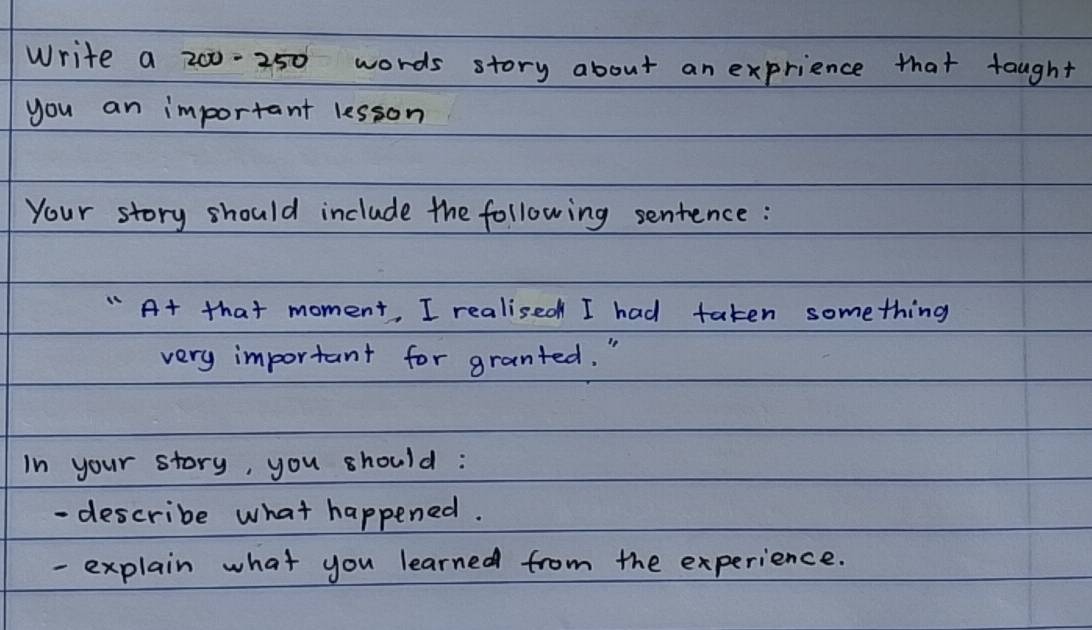 Write a 200-250 words story about an exprience that taught
you an important lesson
Your story should include the following sentence :
" At that moment, I realised I had taken something
very important for granted."
In your story, you should :
- describe what happened.
- explain what you learned from the experience.